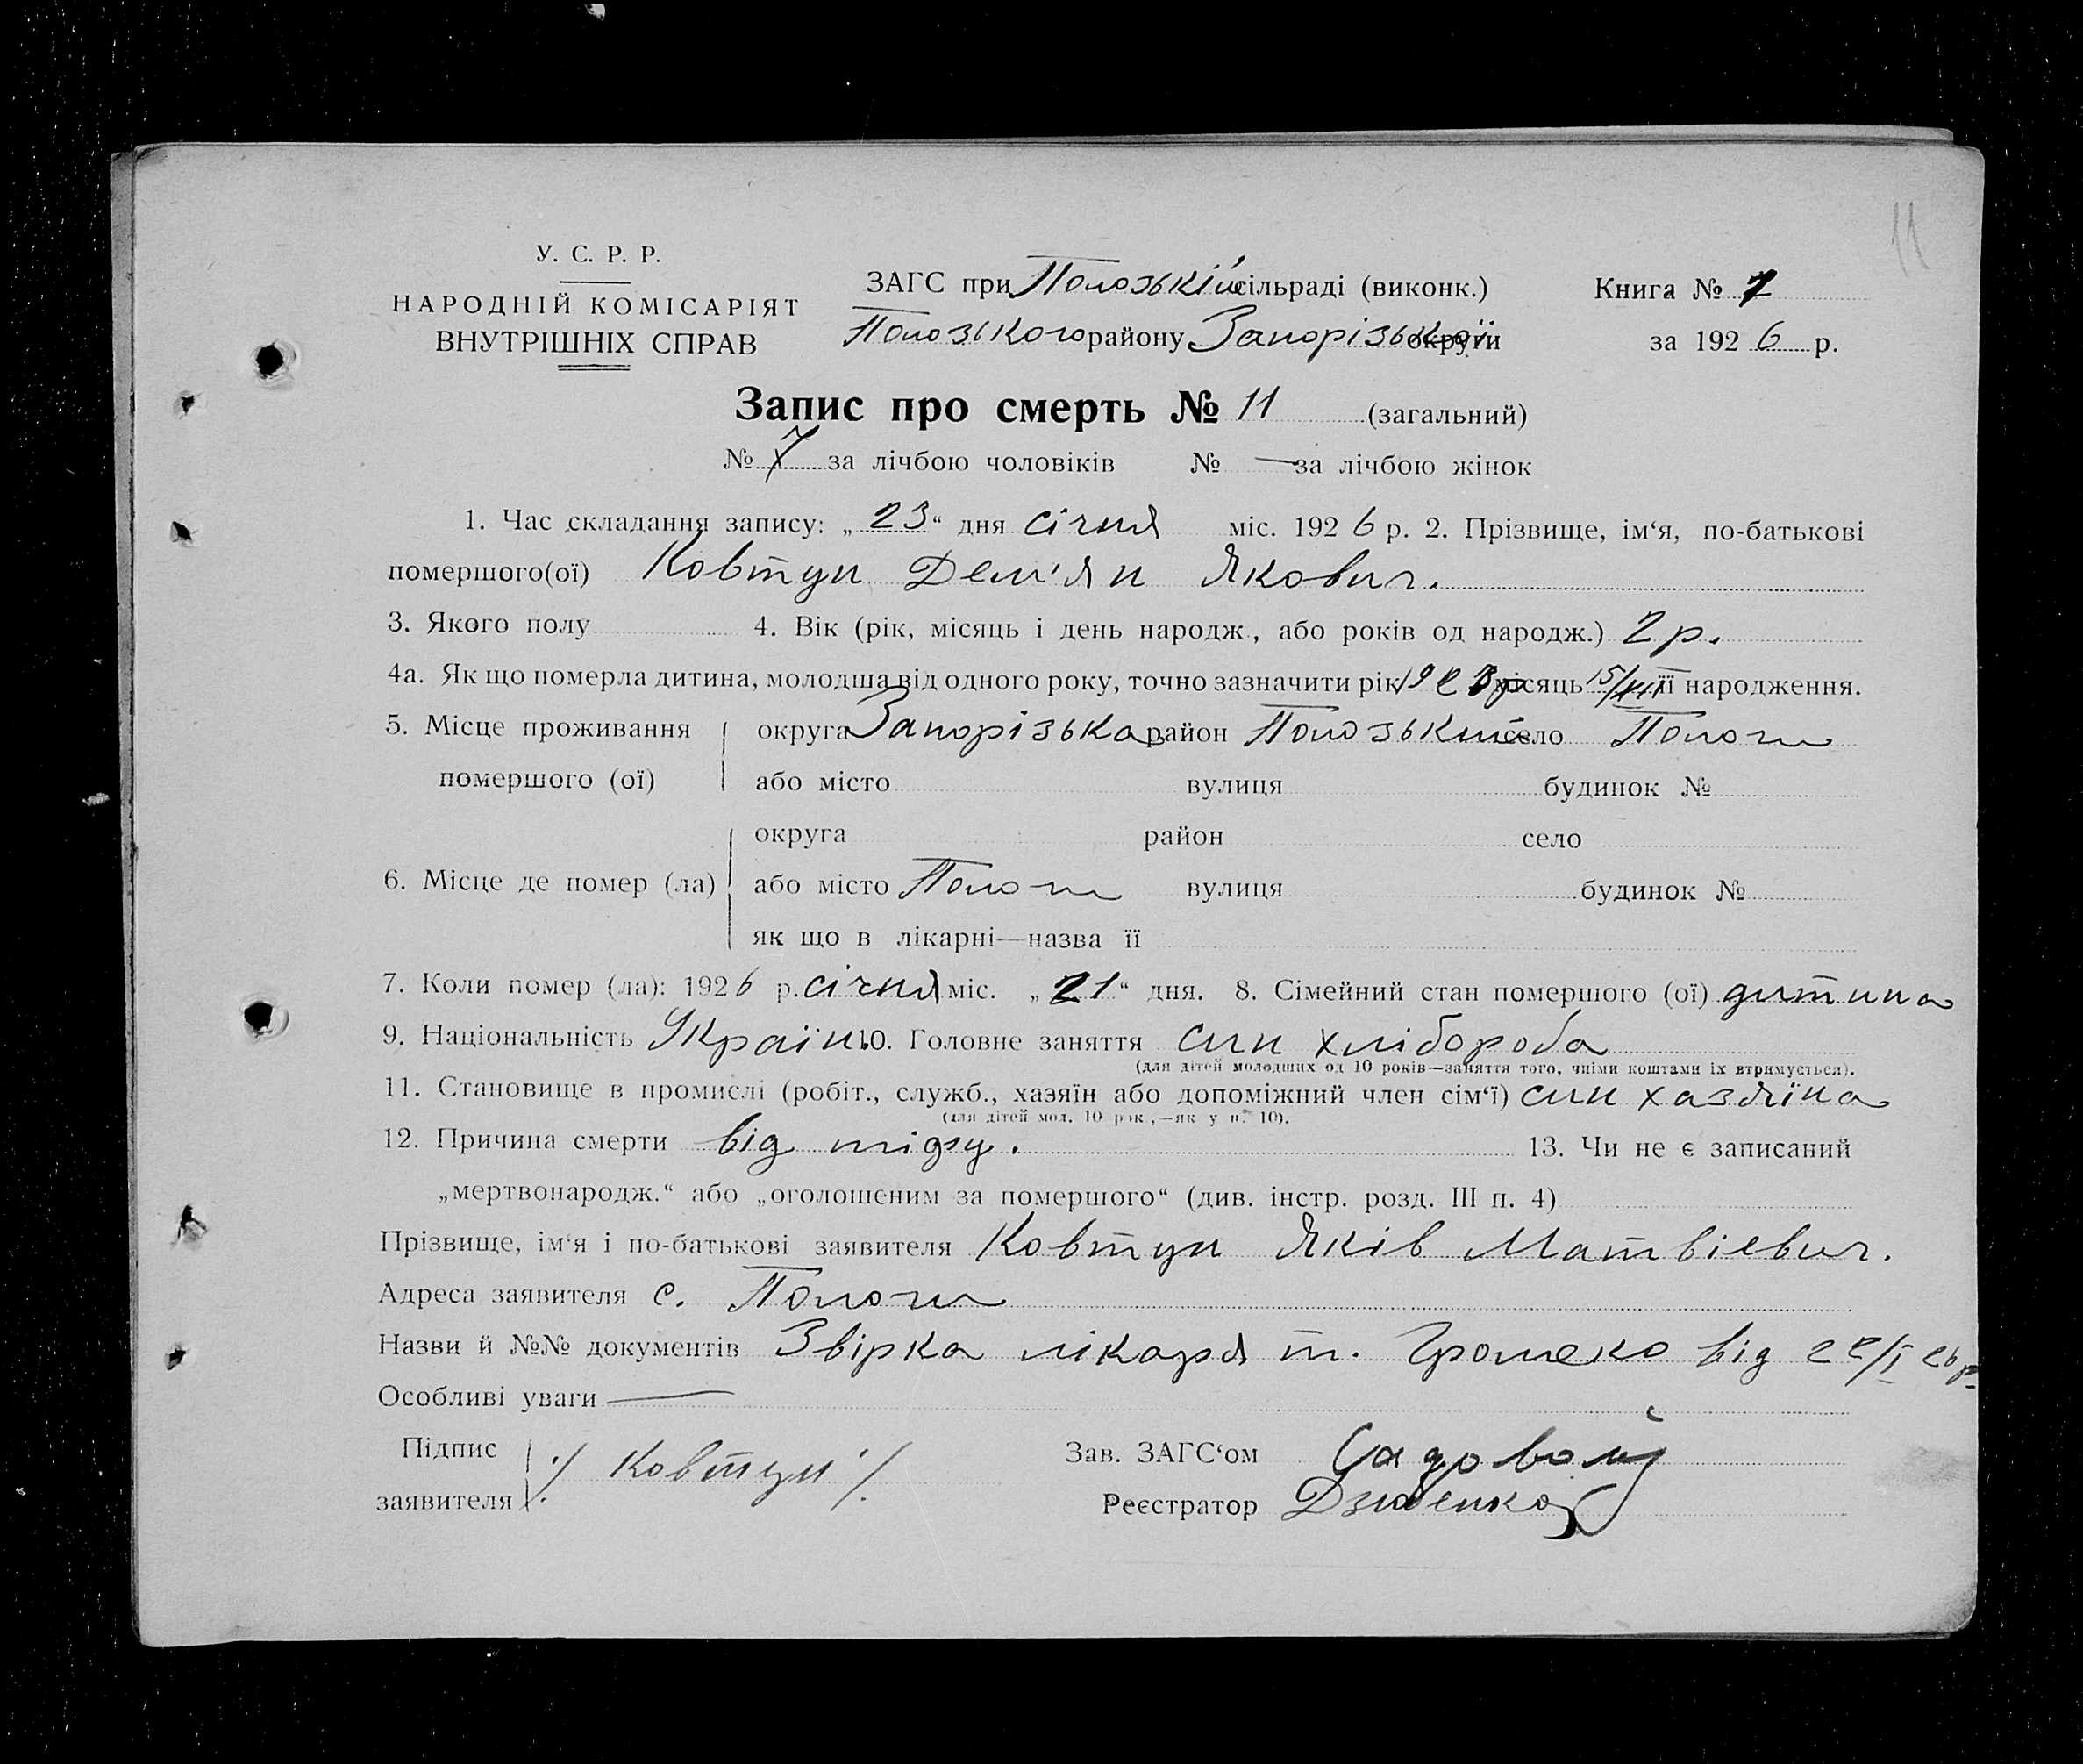 11
У. С. Р. Р.
НАРОДНІЙ КОМІСАРІЯТ
ВНУТРІШНІХ СПРАВ
ЗАГС при Полозькій сільраді (виконк.)
Полозького району Запорізької округи
Книга №
за 1926 р.
Запис про смерть № 11 (загальний)
№ 7 за лічбою чоловіків № — за лічбою жінок
1. Час складання запису: „23“ дня січня міс. 1926 р. 2. Прізвище, ім‘я, по-батькові
помершого(ої) Ковтун Дем'ян Якович.
3. Якого полу 4. Вік (рік, місяць і день народж., або років од народж.) 2 р.
4а. Як що померла дитина, молодша від одного року, точно зазначити рік 1923 місяць 15/ її народження.
5. Місце проживання округа Запорізька район Полозький село Пологи
помершого (ої) або місто вулиця будинок №
округа район село
6. Місце де помер (ла) або місто Пологи вулиця будинок №
як що в лікарні—назва її
7. Коли помер (ла): 1926 р. січня міс. „21“ дня. 8. Сімейний стан помершого (ої) дитина
9. Національність Україн. 10. Головне заняття син хлібороба
(для дітей молодших од 10 років—заняття того, чиїми коштами їх втримується).
11. Становище в промислі (робіт., служб., хазяїн або допоміжний член сім‘ї) син хазяїна
(для дітей мол. 10 рок.,—як у п. 10).
12. Причина смерти від 13. Чи не є записаний
„мертвонародж.“ або „оголошеним за помершого“ (див. інстр. розд. III п. 4)
Прізвище, ім‘я і по-батькові заявителя Ковтун Яків Матвієвич.
Адреса заявителя с. Пологи
Назви й №№ документів Звірка лікаря т. Громеко від 22/I 26 р.
Особливі уваги —
Підпис
заявителя /Ковтун/
Зав. ЗАГС‘ом Садовой
Реєстратор